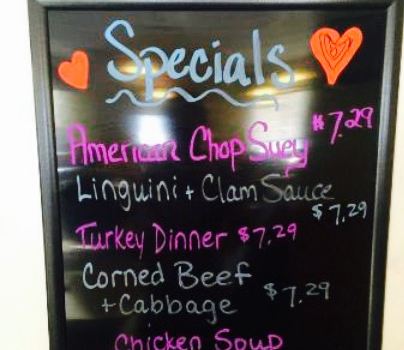 Specials
American Chop Suey $7.29
Linguini + Clam Sauce
$7.29
Turkey Dinner $7.29
Corned Beef
+ Cabbage $7.29
Chicken Soup